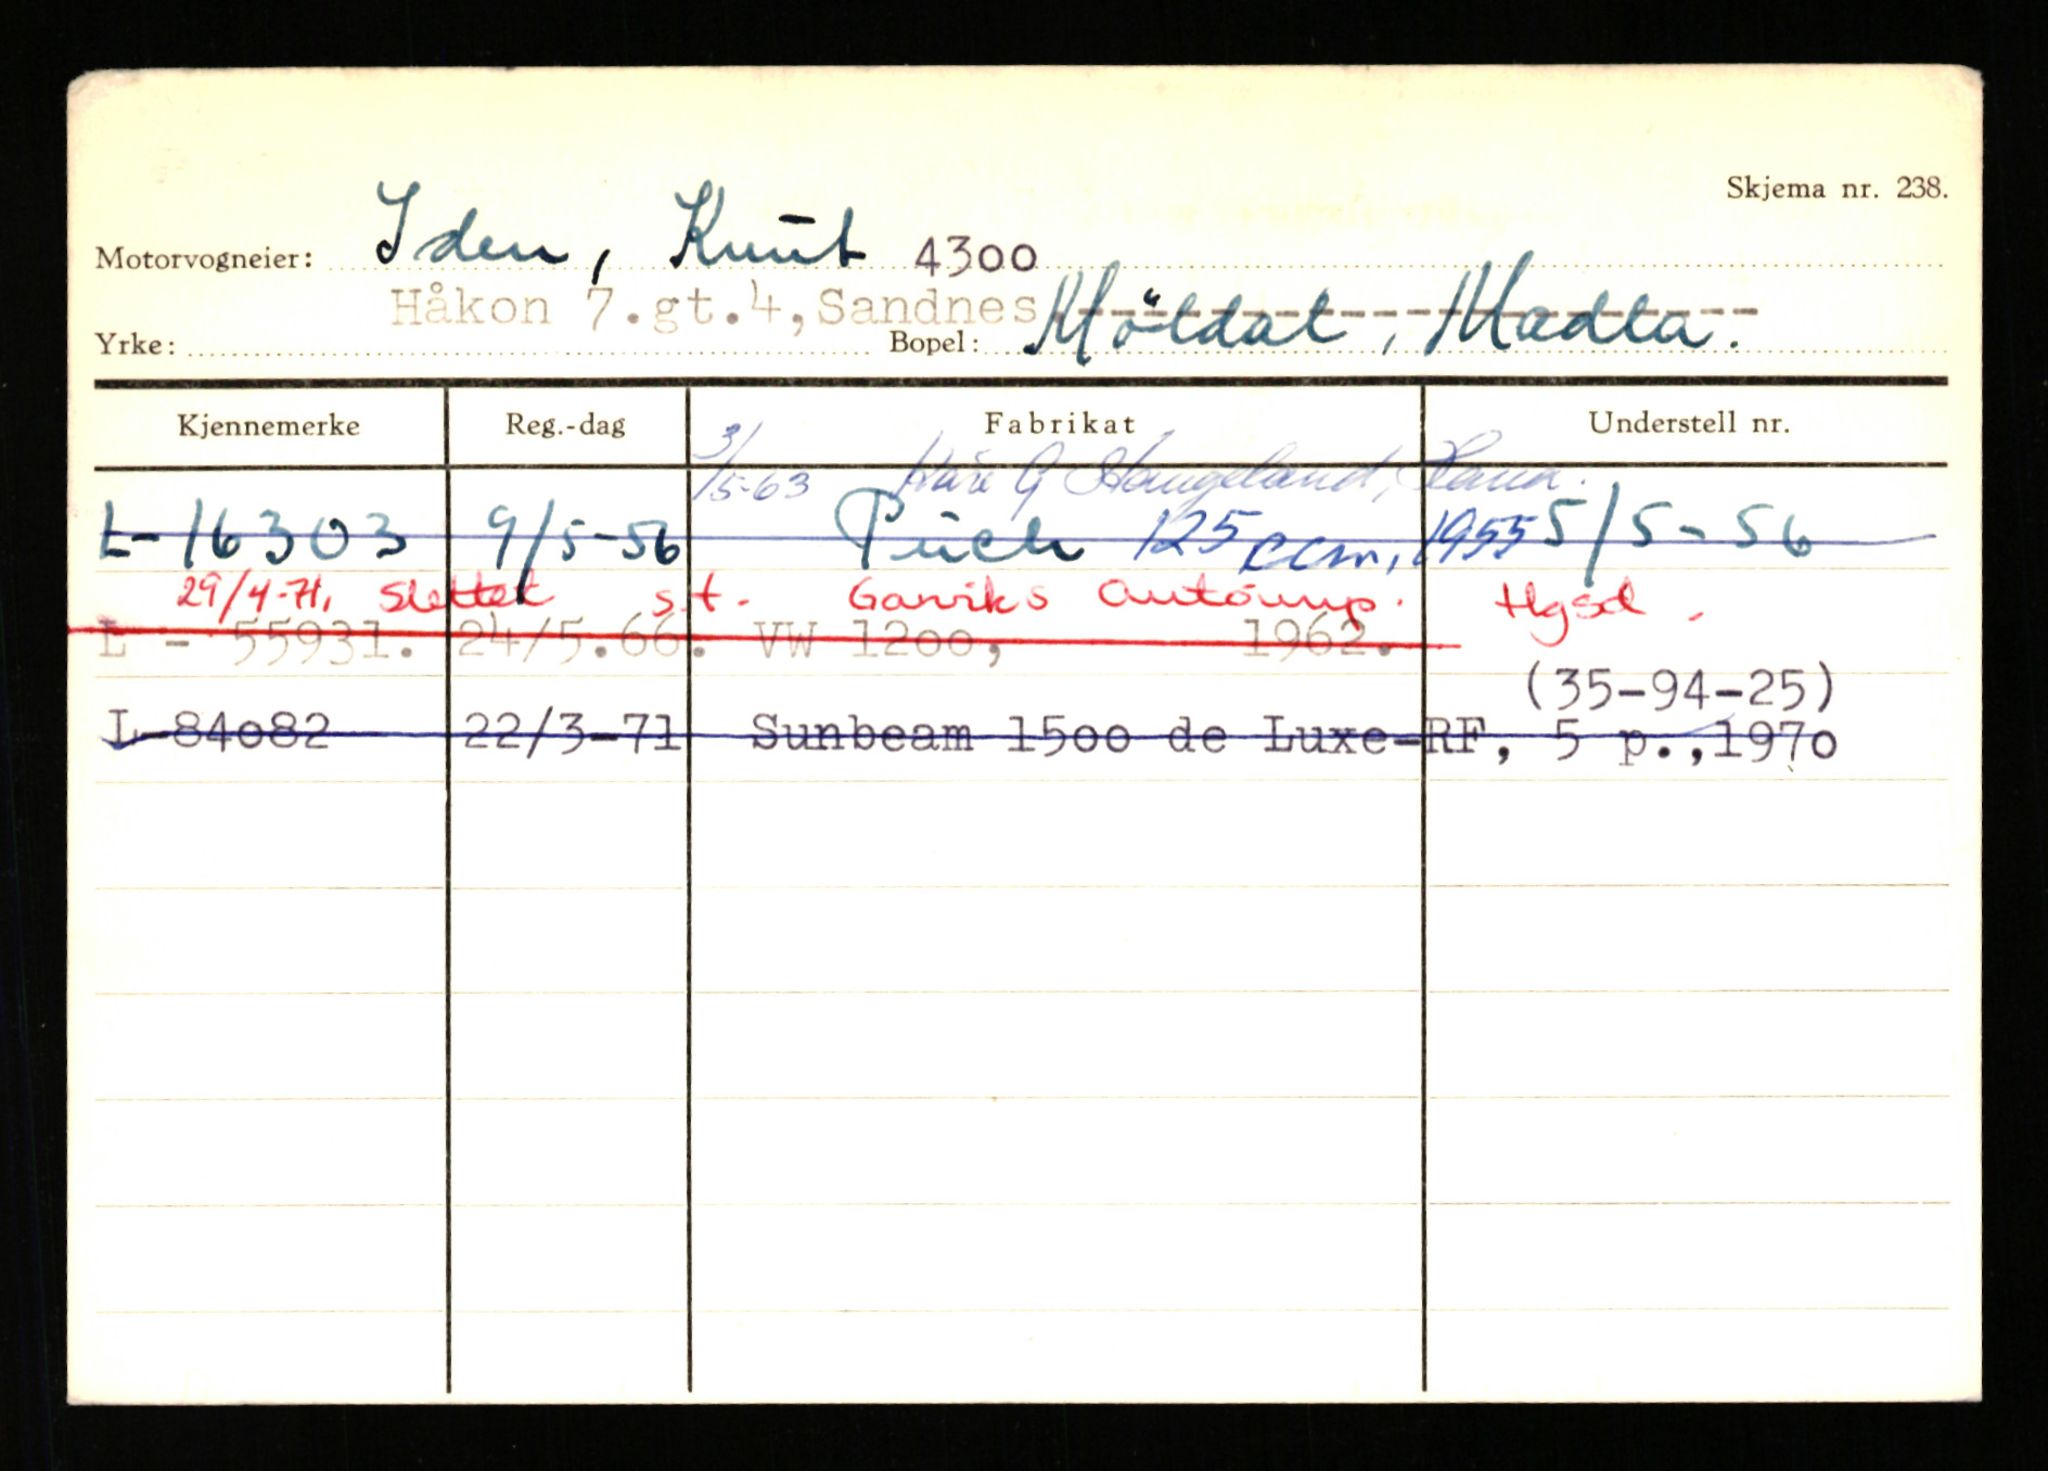 Skjema nr. 238.
Motorvogneier: Iden, Knut 4300
Håkon 7.gt.4, Sandnes
Yrke: Bopel: Möldal, Madla.
Kjennemerke Reg.-dag Fabrikat Understell nr.
3/5-63 Kåre G Haugeland, Hana.
L-16303 9/5-56 Puch 125 ccm, 1955 5/5-56
29/4-71. Slettet s.t. Garviks Autoupp. Hgsd.
L - 55931. 24/5.66. VW 1200, 1962.
(35-94-25)
L-84082 22/3-71 Sunbeam 1500 de Luxe-RF, 5 p.,1970